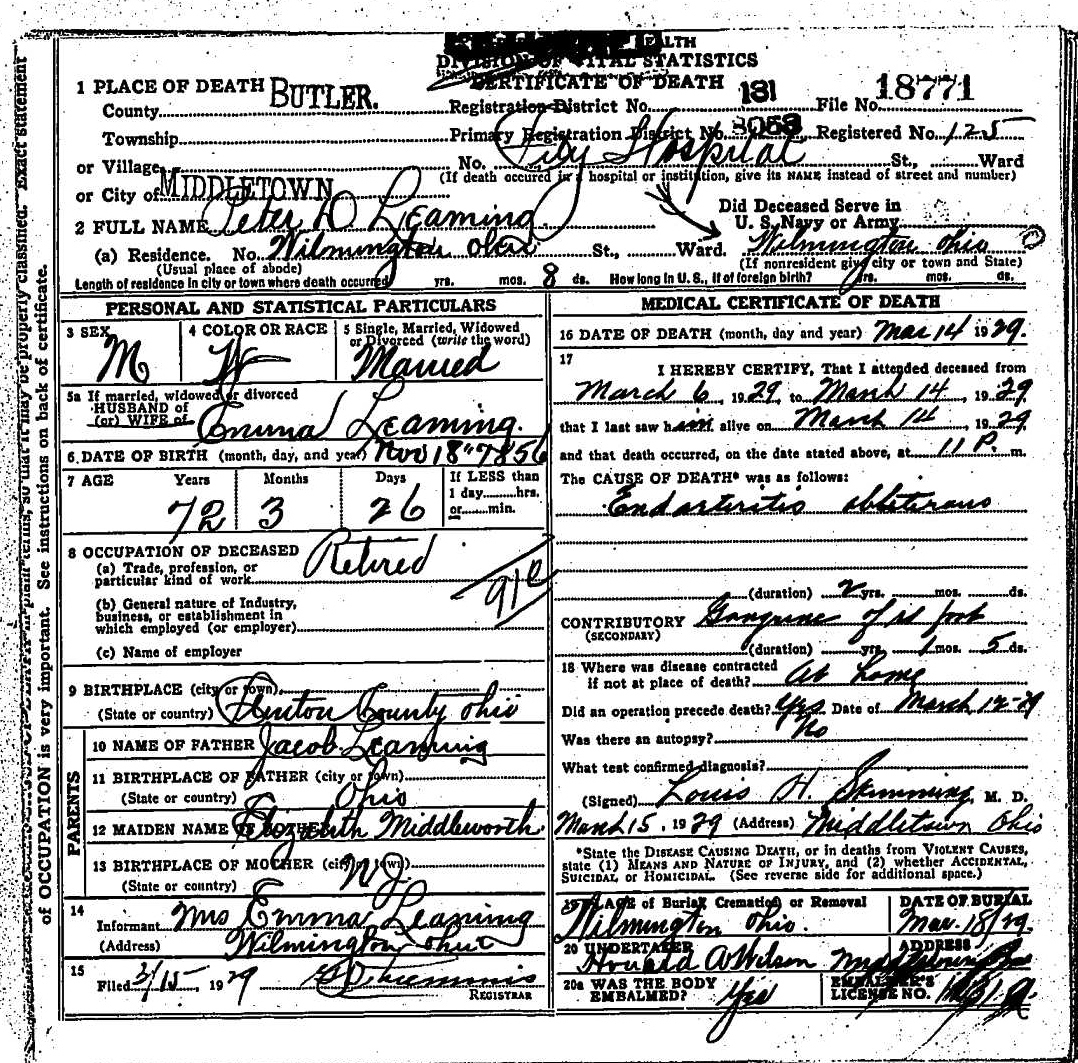 DIVISION OF VITAL STATISTICS
CERTIFICATE OF DEATH
1 PLACE OF DEATH BUTLER.
County
Registration District No. 131 File No. 18771
Township
Primary Registration District No. 8058 Registered No. 125
or Village
No. City Hospital St., Ward
(If death occured in a hospital or institution, give its NAME instead of street and number)
or City of MIDDLETOWN
Did Deceased Serve in
U. S. Navy or Army
2 FULL NAME Peter D Leaming
(a) Residence. No. Wilmington Ohio St., Ward. Wilmington Ohio
(Usual place of abode) (If nonresident give city or town and State)
Length of residence in city or town where death occurred yrs. mos. 8 ds. How long in U. S., if of foreign birth? yrs. mos. ds.
PERSONAL AND STATISTICAL PARTICULARS
3 SEX M
4 COLOR OR RACE W
5 Single, Married, Widowed
or Divorced (write the word)
Married
5a If married, widowed or divorced
HUSBAND of
(or) WIFE of Emma Leaming.
6 DATE OF BIRTH (month, day, and year) Nov 18" 1856
7 AGE Years Months Days If LESS than
1 day......hrs.
or......min.
72 3 26
8 OCCUPATION OF DECEASED
(a) Trade, profession, or
particular kind of work Retired
(b) General nature of Industry,
business, or establishment in
which employed (or employer)
(c) Name of employer
9 BIRTHPLACE (city or town)
(State or country) Clinton County Ohio
PARENTS
10 NAME OF FATHER Jacob Leaming
11 BIRTHPLACE OF FATHER (city or town)
(State or country) Ohio
12 MAIDEN NAME Elizabeth Middleworth
13 BIRTHPLACE OF MOTHER (city or town)
(State or country) NJ.
14
Informant Mrs Emma Leaming
(Address) Wilmington Ohio
15
Filed 3/15, 1929
REGISTRAR
MEDICAL CERTIFICATE OF DEATH
16 DATE OF DEATH (month, day and year) Mar 14 1929.
17
I HEREBY CERTIFY, That I attended deceased from
March 6, 1929, to March 14, 1929
that I last saw him alive on March 14, 1929
and that death occurred, on the date stated above, at 11 P. m.
The CAUSE OF DEATH* was as follows:
Endarteritis obliterans
(duration) 2 yrs. mos. ds.
CONTRIBUTORY Gangrene of foot
(SECONDARY)
(duration) yrs. 1 mos. 5 ds.
18 Where was disease contracted
if not at place of death? At home
Did an operation precede death? Yes Date of March 12-29
Was there an autopsy? No
What test confirmed diagnosis?
(Signed) Louis H. Skimming, M. D.
March 15, 1929 (Address) Middletown Ohio
*State the DISEASE CAUSING DEATH, or in deaths from VIOLENT CAUSES,
state (1) MEANS AND NATURE OF INJURY, and (2) whether ACCIDENTAL,
SUICIDAL or HOMICIDAL. (See reverse side for additional space.)
19 PLACE of Burial Cremation or Removal DATE OF BURIAL
Wilmington Ohio. Mar. 18/29.
20 UNDERTAKER ADDRESS
Howard A Wilson
20a WAS THE BODY
EMBALMED? Yes
EMBALMER'S
LICENSE NO.
of OCCUPATION is very important. See instructions on back of certificate.